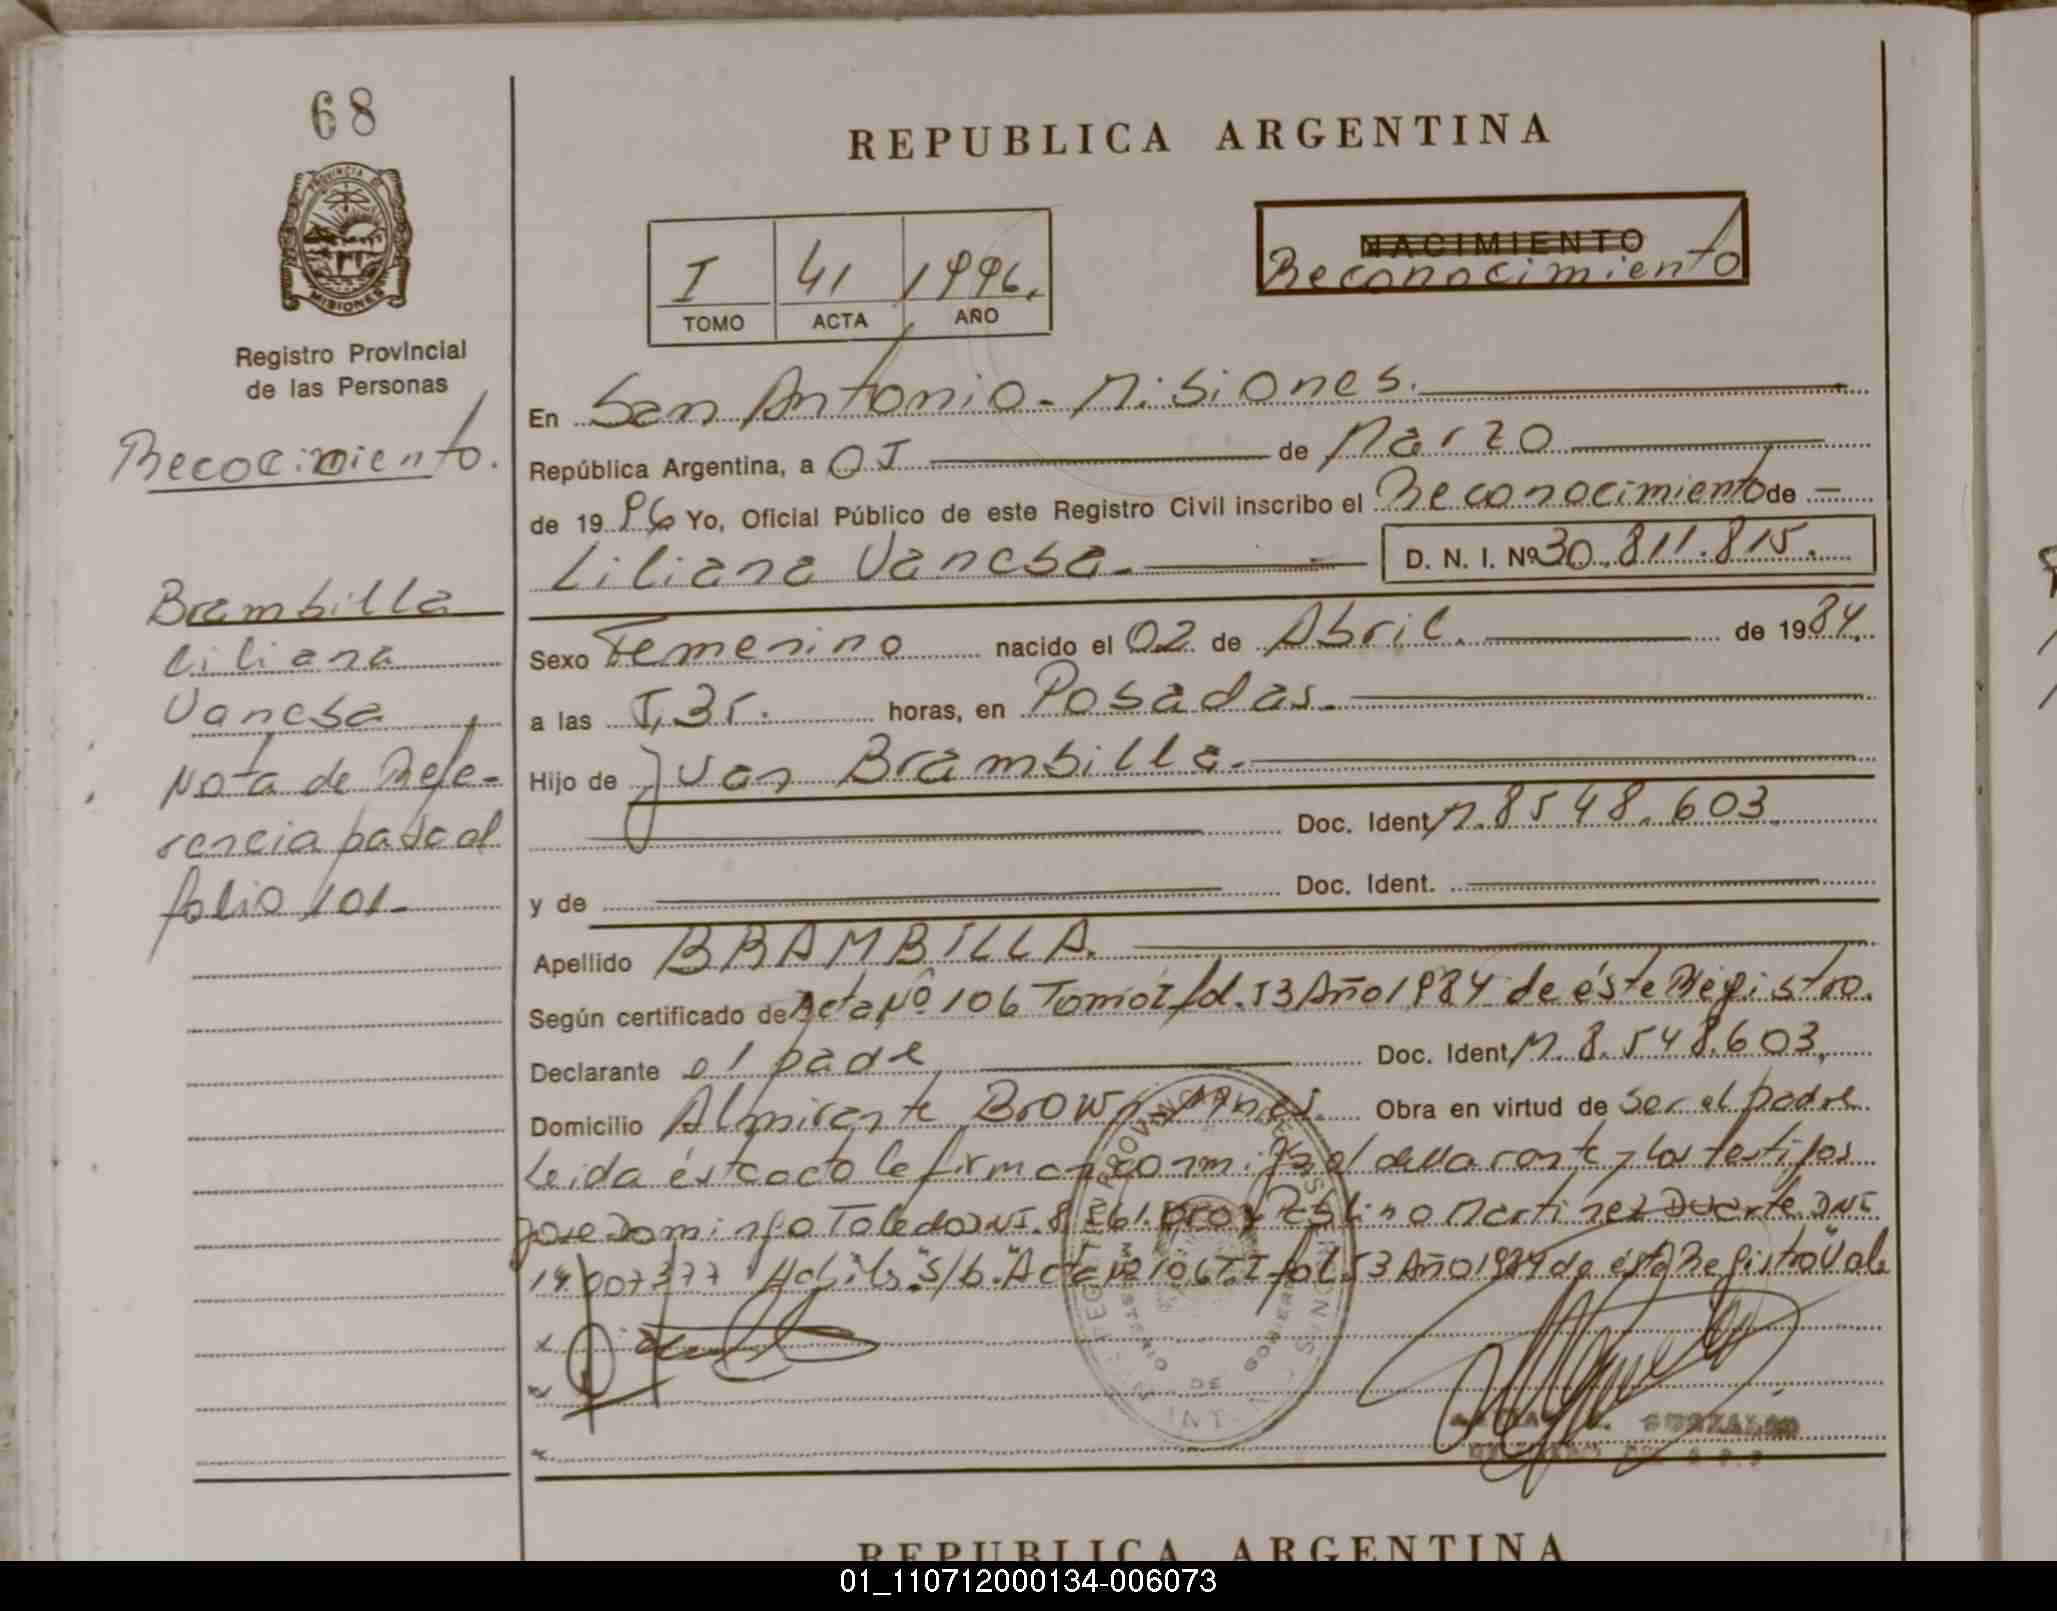 68
PROVINCIA DE
MISIONES
Registro Provincial
de las Personas
Recocimiento.
Brambilla
Liliana
Vanesa
Nota de Refe-
rencia pasa al
folio 101-
REPUBLICA ARGENTINA
I 41 1996.
TOMO ACTA AÑO
NACIMIENTO
Reconocimiento
En San Antonio - Misiones.
República Argentina, a 05 de Marzo
de 1996 Yo, Oficial Público de este Registro Civil inscribo el Reconocimiento de -
Liliana Vanesa.- D. N. I. Nº 30.811.815.
Sexo Femenino nacido el 02 de Abril. de 1984.
a las 5,35. horas, en Posadas.
Hijo de Juan Brambilla.
Doc. Ident M. 8548.603.
y de Doc. Ident.
Apellido BRAMBILLA.
Según certificado de Acta Nº 106 Tomo I fol. 53 Año 1984 de éste Registro.
Declarante el padre Doc. Ident M. 8.548.603.
Domicilio Almirante Brown Mnes. Obra en virtud de ser el padre
Leida ésta acta la firman conmigo el declarante y los testigos
Jose Domingo Toledo DNI. 8 y Martinez Duarte DNI
Habils. S/b. "Acta Nº 106 T. I fol 53 Año 1984 de éste Registro" Vale
REPUBLICA ARGENTINA
01_110712000134-006073